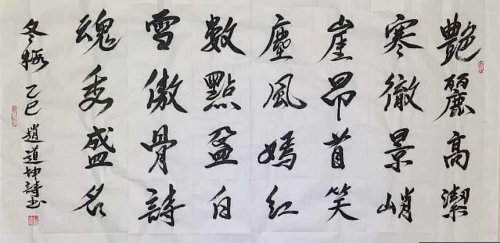 艷麗高潔
寒徹景峭
崖昂首笑
塵風嫣紅
數點盈白
雪傲骨詩
魂委盛名
冬梅 乙巳 趙道坤詩书